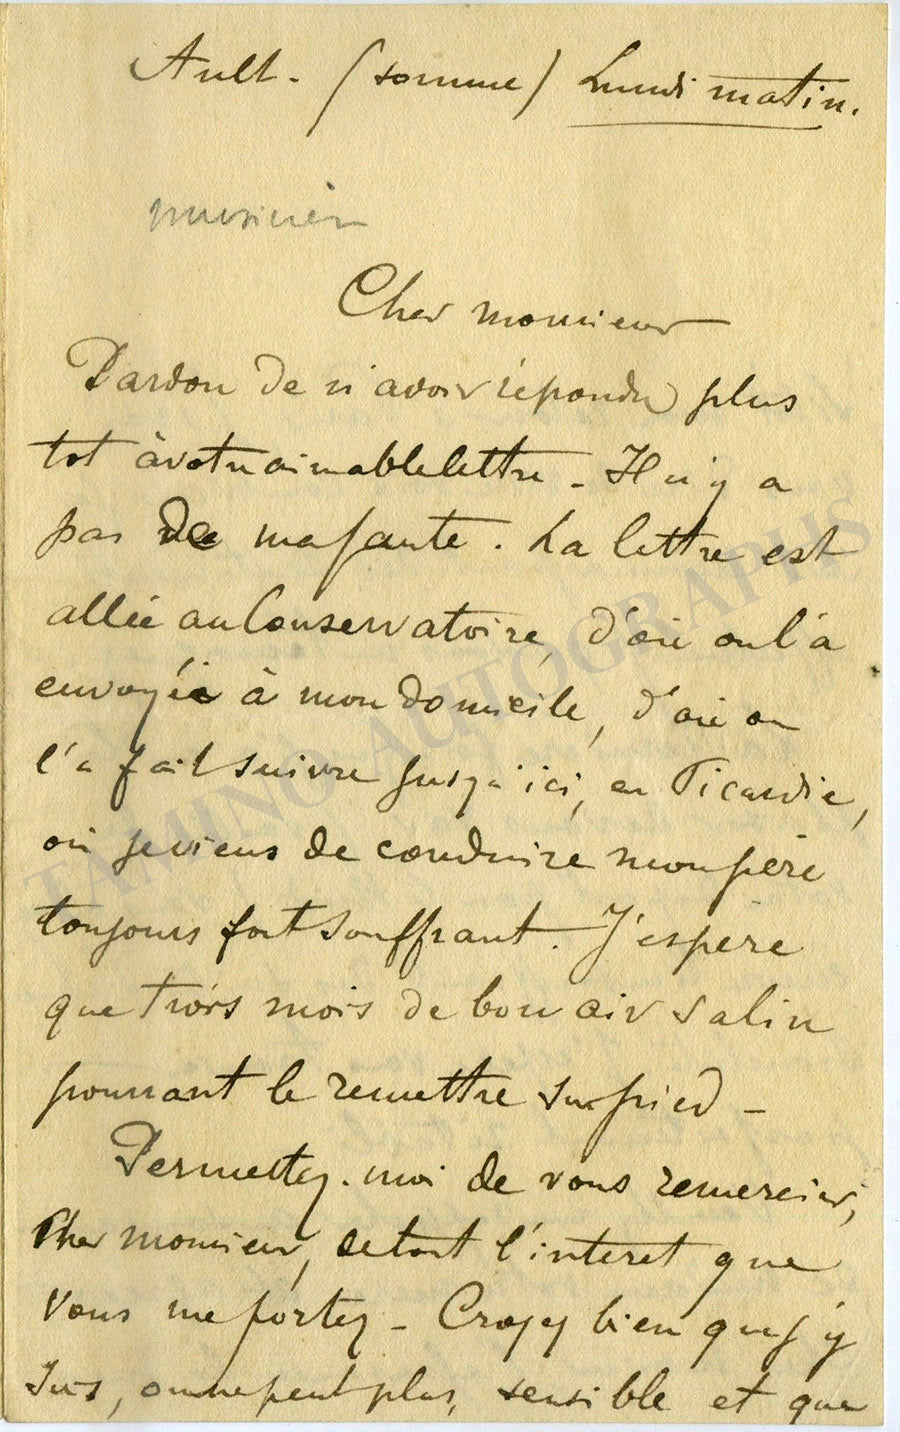 Ault - (somme) Lundi matin.
musicien
Cher monsieur
Pardon de n'avoir répondu plus
tot à votre aimable lettre - Il n'y a
pas de ma faute. La lettre est
allée au Conservatoire, d'où on l'a
envoyée à mon domicile, d'où on
l'a fait suivre jusqu'ici, en Picardie,
où je viens de conduire mon père
toujours fort souffrant. J'espère
que trois mois de bon air salin
pourront le remettre sur pied -
Permettez-moi de vous remercier,
Cher monsieur, de tout l'interet que
vous me portez - Croyez bien que j'y
suis, on ne peut plus, sensible et que
TAMINO AUTOGRAPHS